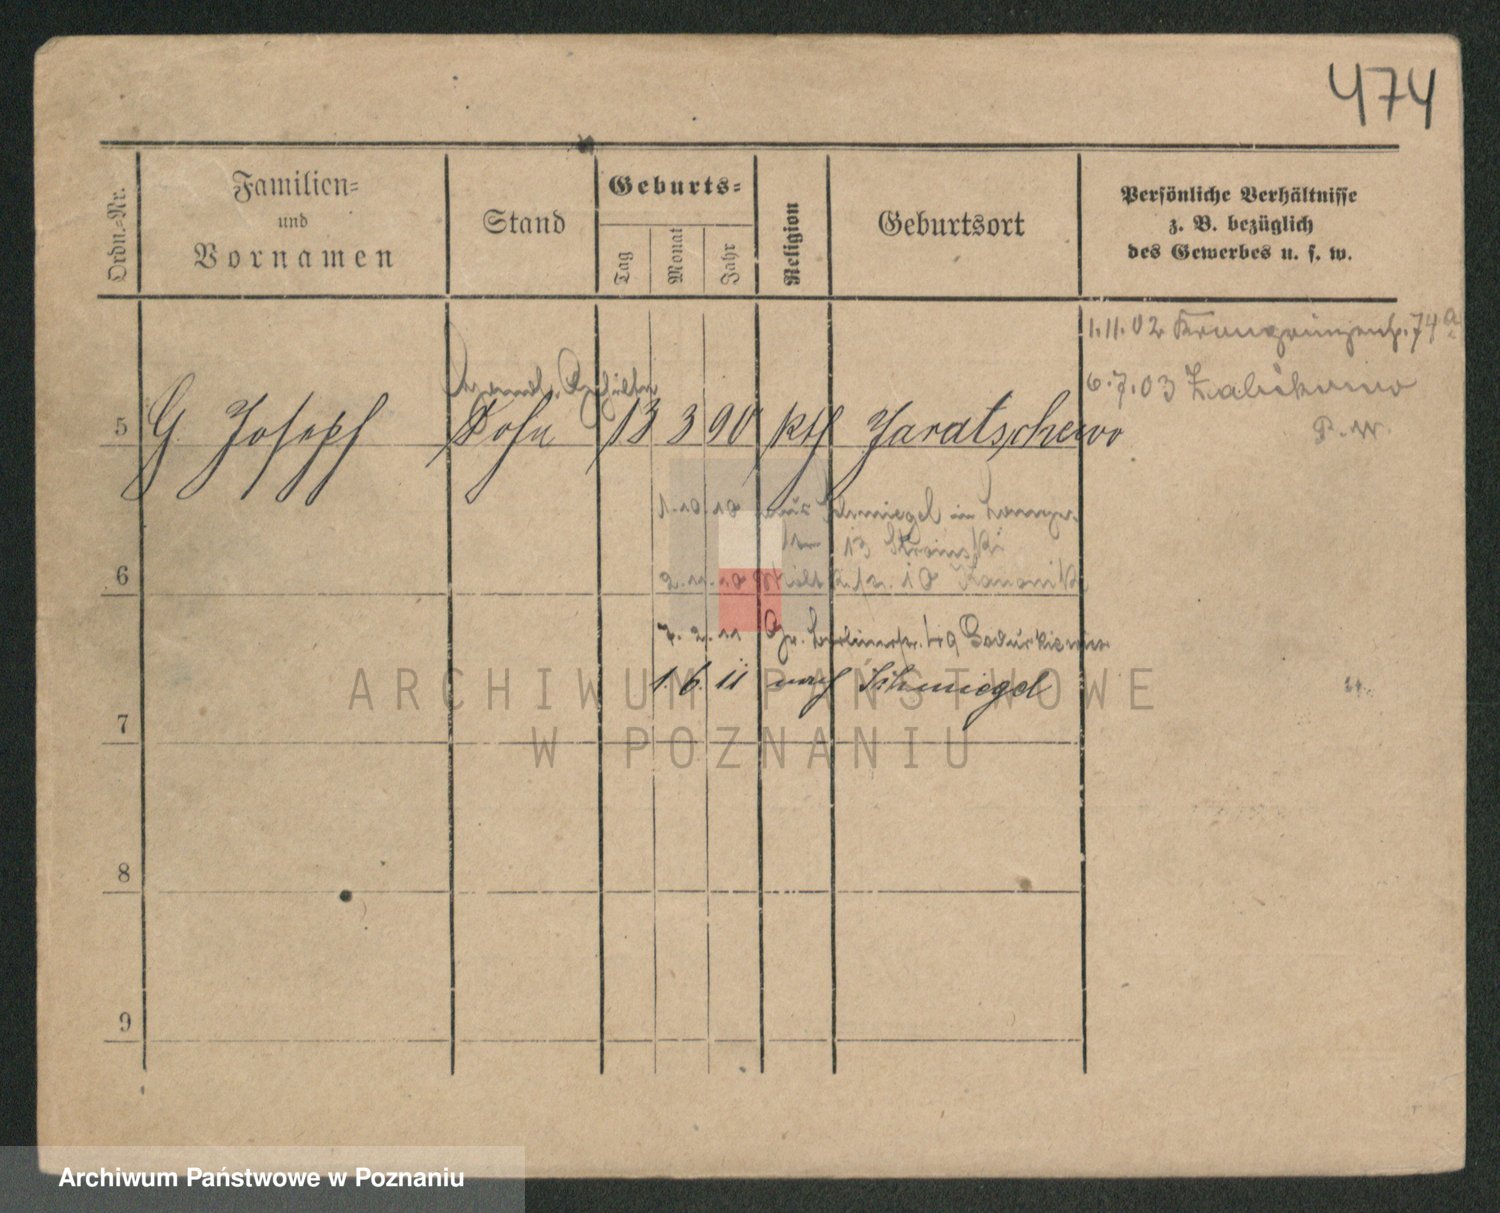 474
Ordn.-Nr.
Familien-
und
Vornamen
Stand
Geburts-
Tag
Monat
Jahr
Religion
Geburtsort
Persönliche Verhältnisse
z. B. bezüglich
des Gewerbes u. s. w.
1.11.02 74a
6.7.03
5 G Joseph Sohn 13 3 90 kth Jaratschewo
1.10.10 aus Schmiegel in
13
6
2.11.10 10
7. 2. 11
1. 6. 11 nach Schmiegel
7
8
9
ARCHIWUM PAŃSTWOWE
W POZNANIU
Archiwum Państwowe w Poznaniu